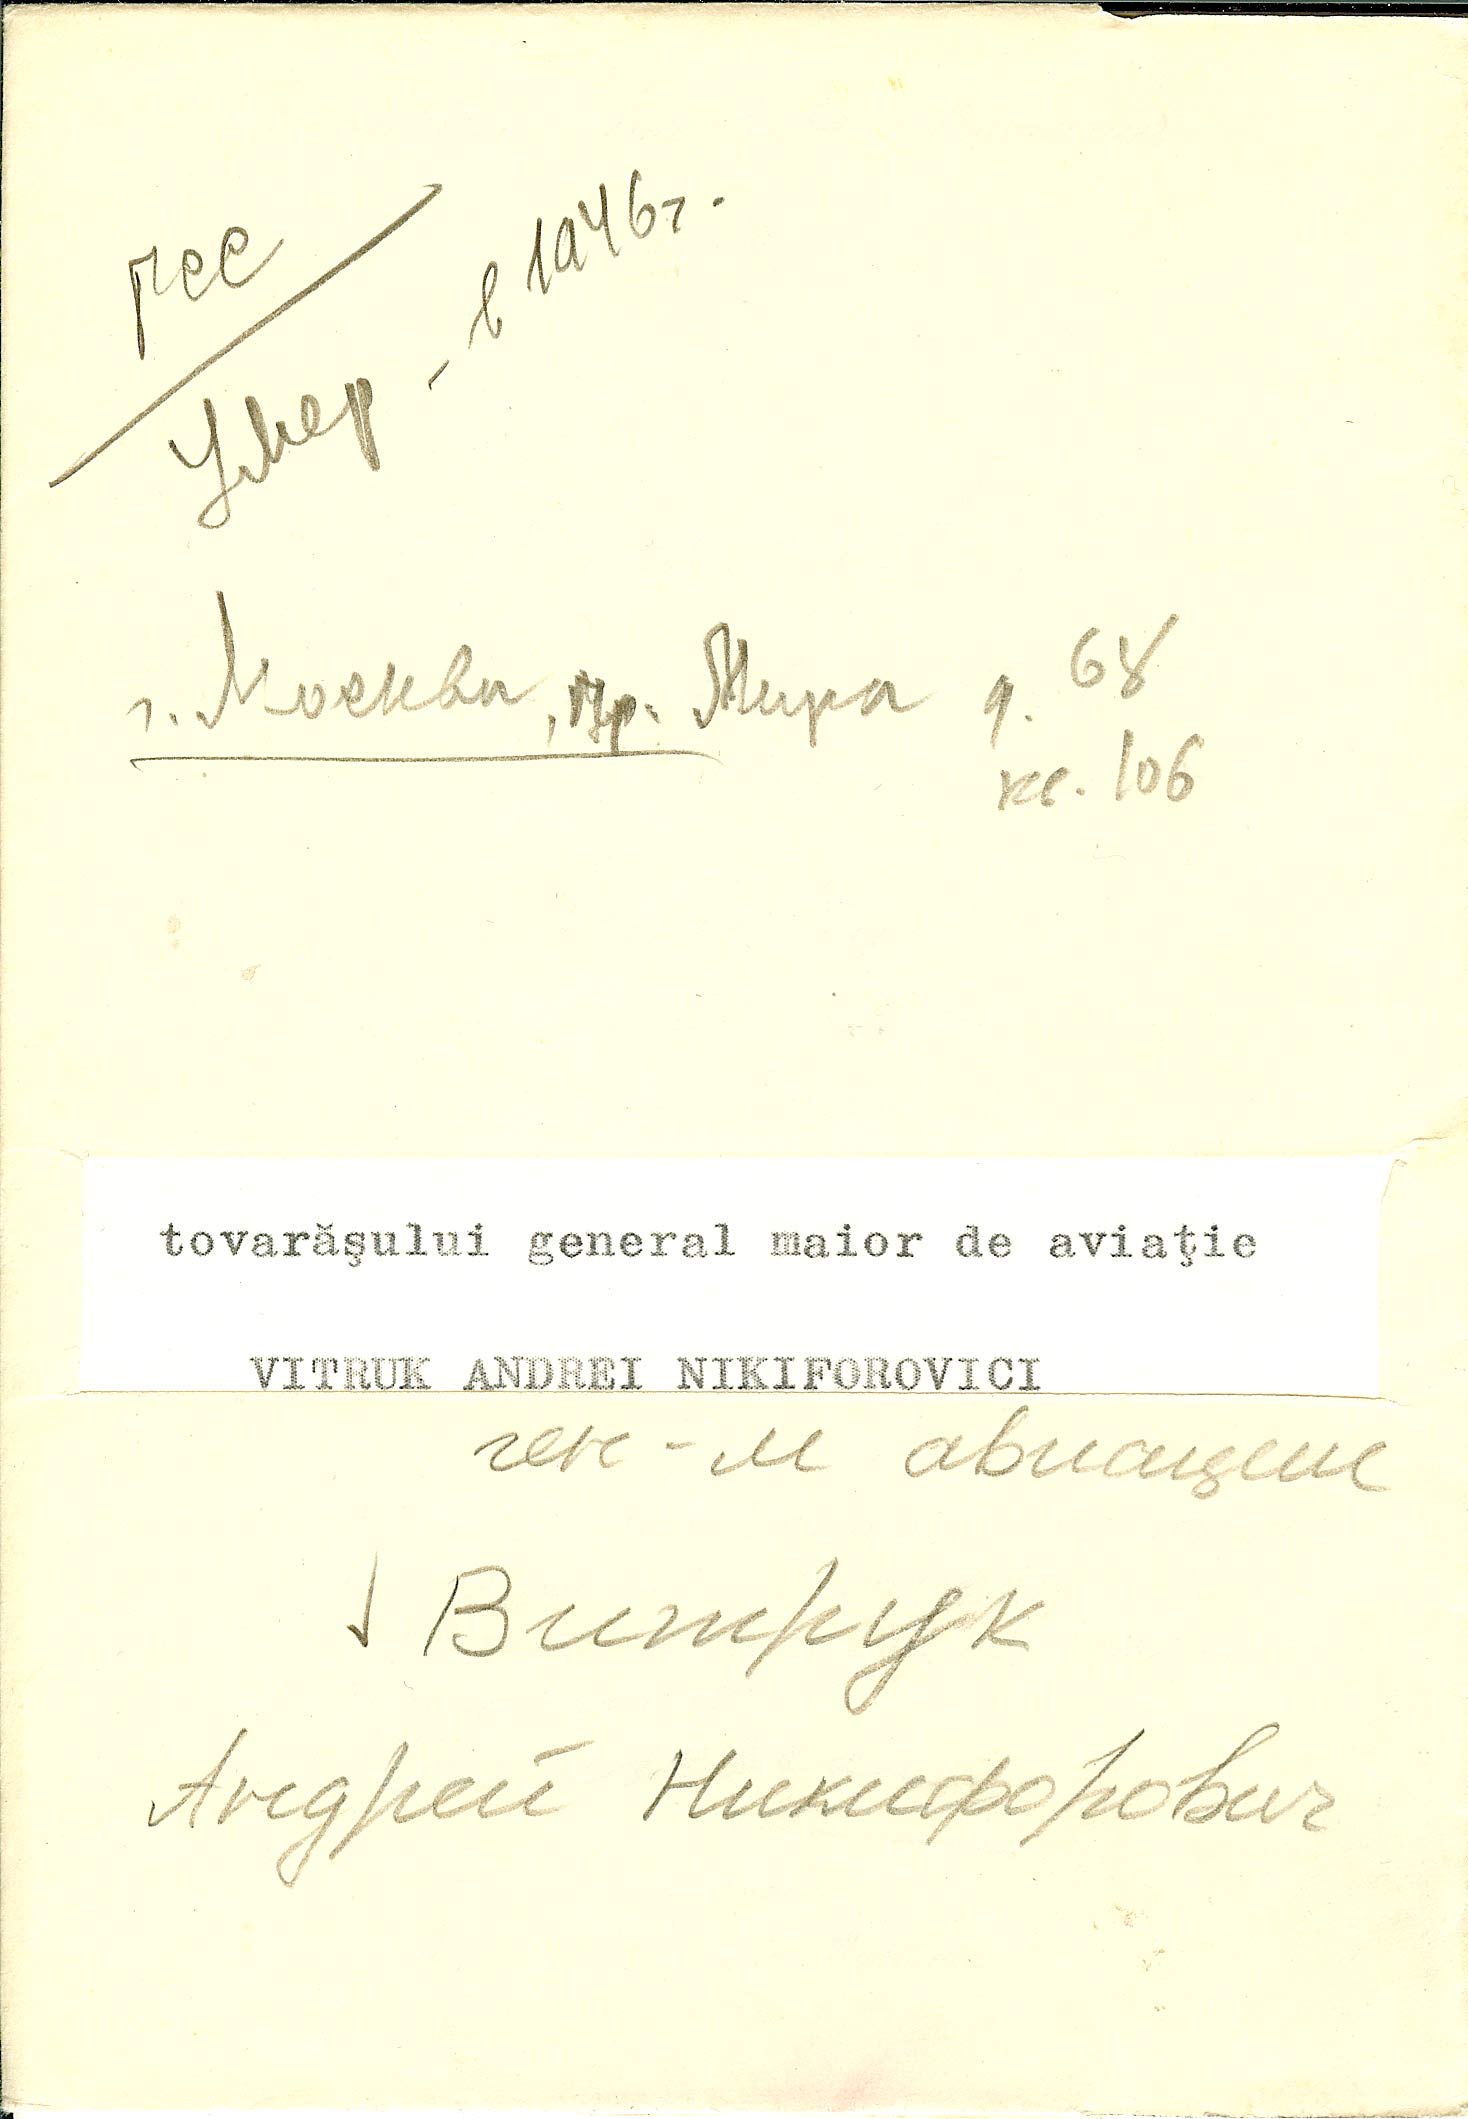 ГСС
Умер - в 1946г.
г. Москва, пр. Мира д. 68
кв. 106
tovarăşului general maior de aviaţie
VITRUK ANDREI NIKIFOROVICI
ген-м авиации
Витрук
Андрей Никифорович